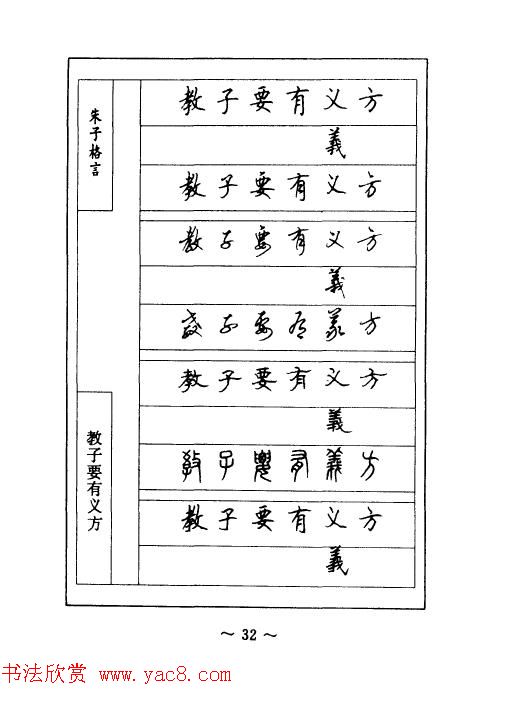 朱子格言
教子要有义方
教子要有义方
義
教子要有义方
教子要有义方
義
教子要有義方
教子要有义方
義
教子要有義方
教子要有义方
義
～ 32 ～
书法欣赏 www.yac8.com